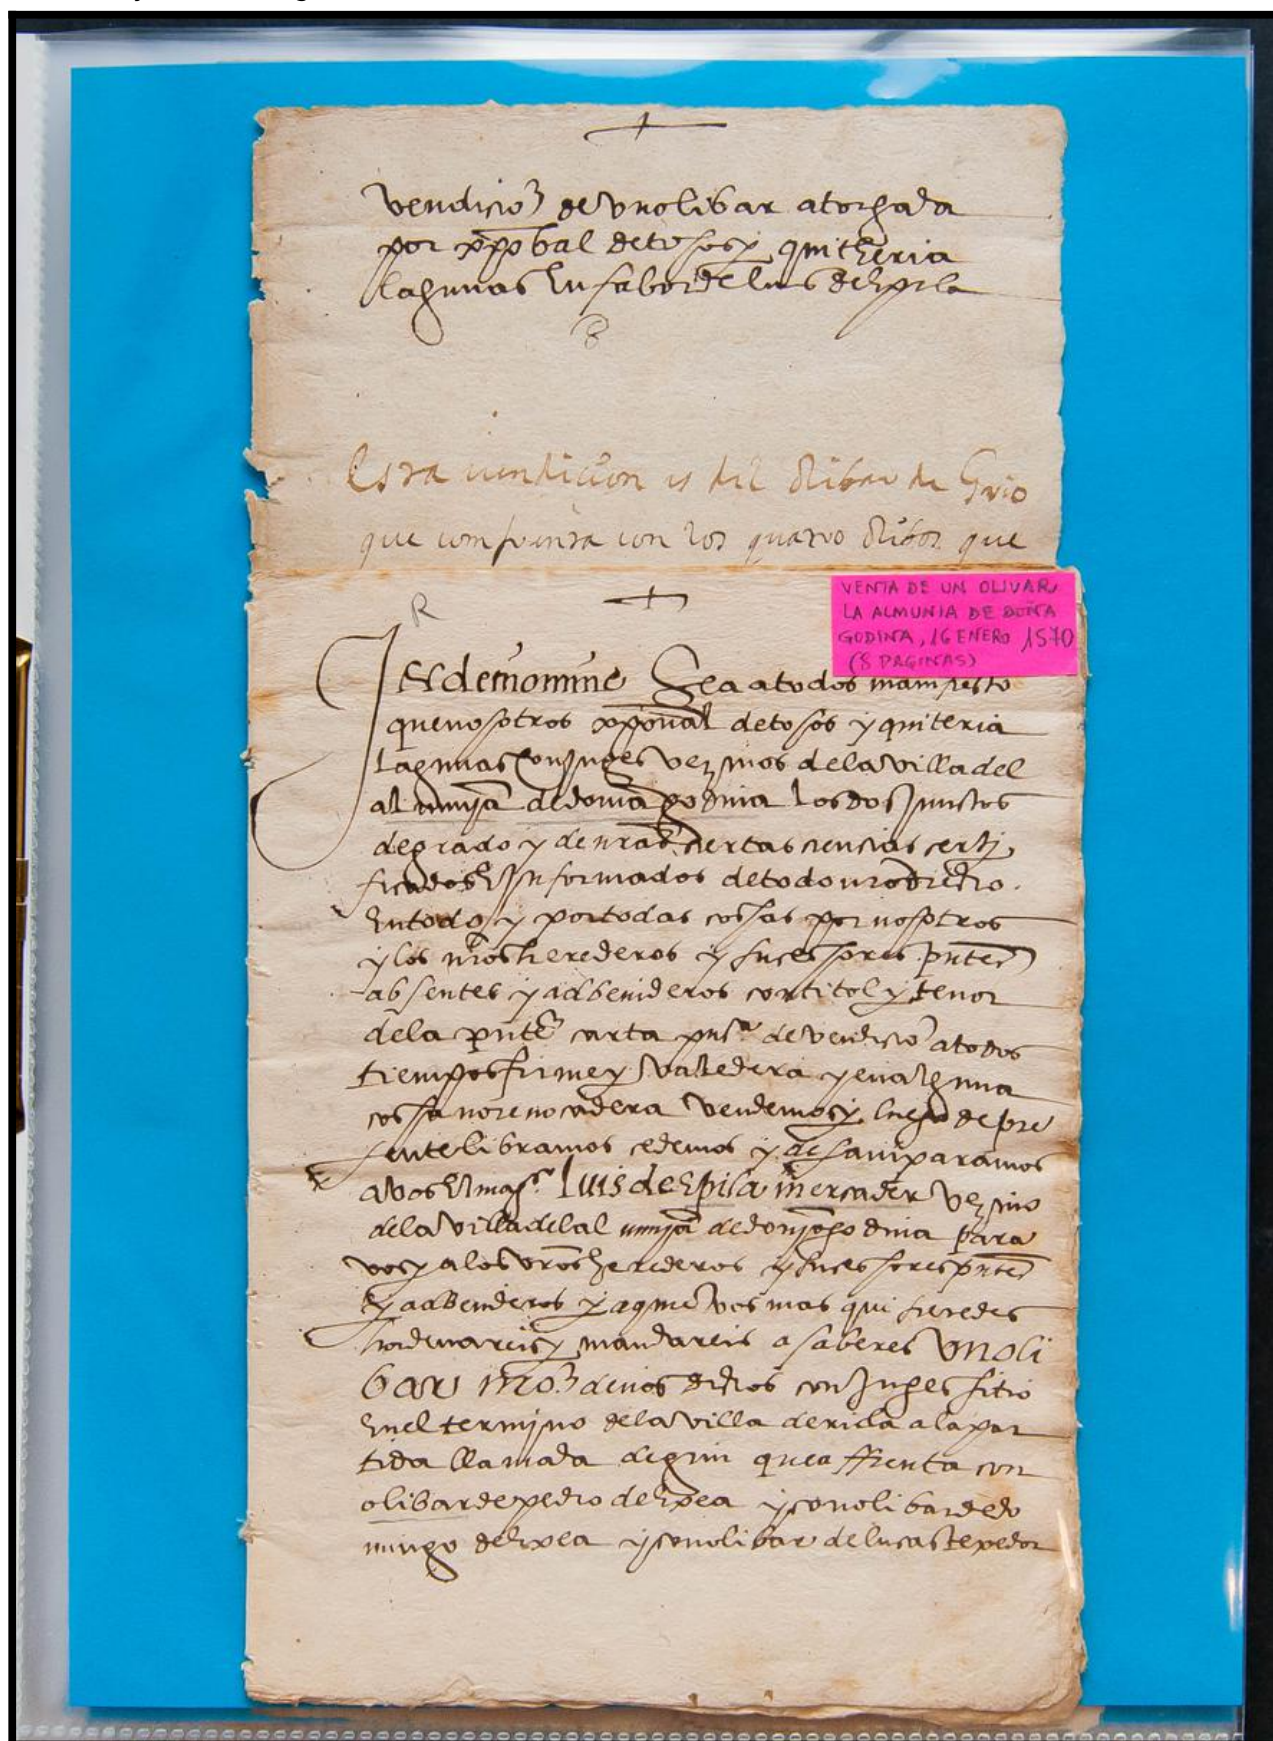 vendicion de vn olibar atorgada
por xpobal de tosos y quitheria
lagunas en fabor de luis de Epila
Esta vendicion es del olibar de Grio
que comfrenta con los quatro olibos que
VENTA DE UN OLIVAR,
LA ALMUNIA DE DOÑA
GODINA, 16 ENERO 1570
(8 PAGINAS)
R
In dei nomine Sea a todos manifiesto
que nosotros xpoual de tosos y quiteria
lagunas conjuges vezinos de la villa del
almunja de doña godina los dos junctos
de grado y de nras ciertas ciencias certi
ficados E informados de todo nro drecho
En todo y por todas cossas por nosotros
y los nros herederos y sucessores pntes
absentes y adbenideros con titol y tenor
de la pnte carta puca de vendicio a todos
tiempos firme y valedera y en alguna
cossa no reuocadera vendemos y luego de pre
sente libramos cedemos y desamparamos
a vos El magco luis de Epila mercader vezino
de la villa del almunja de donya godina para
vos y a los vros herederos y sucessores pntes
y adbenideros y a quien vos mas quisieredes
hordenareis y mandareis a saber es vn oli
bar nro de nos dichos conjuges sitio
En el termino de la villa de ricla a la par
tida llamada de griu que affrenta con
olibar de pedro de Exea y con olibar de do
mingo de Exea y con olibar de lucas texedor